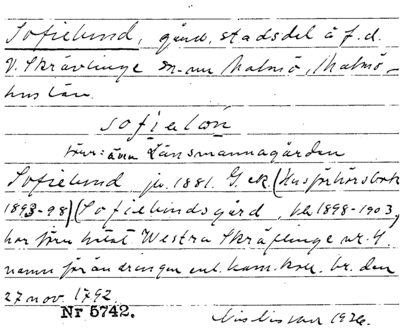 Sofielund, gård, stadsdel å f.d.
V. Skrävlinge sn. nu Malmö, Malmö-
hus län.
sofielön
även Länsmannagården
Sofielund jv. 1881. G. ek. (Husförhörsbok
1893-98) (Sofielundsgård, 1898-1903,
har förr hetat Westra Skräflinge nr. 4.
namnförändringen enl. kam. koll. br. den
27 nov. 1792.
Nr 5742.
1926.